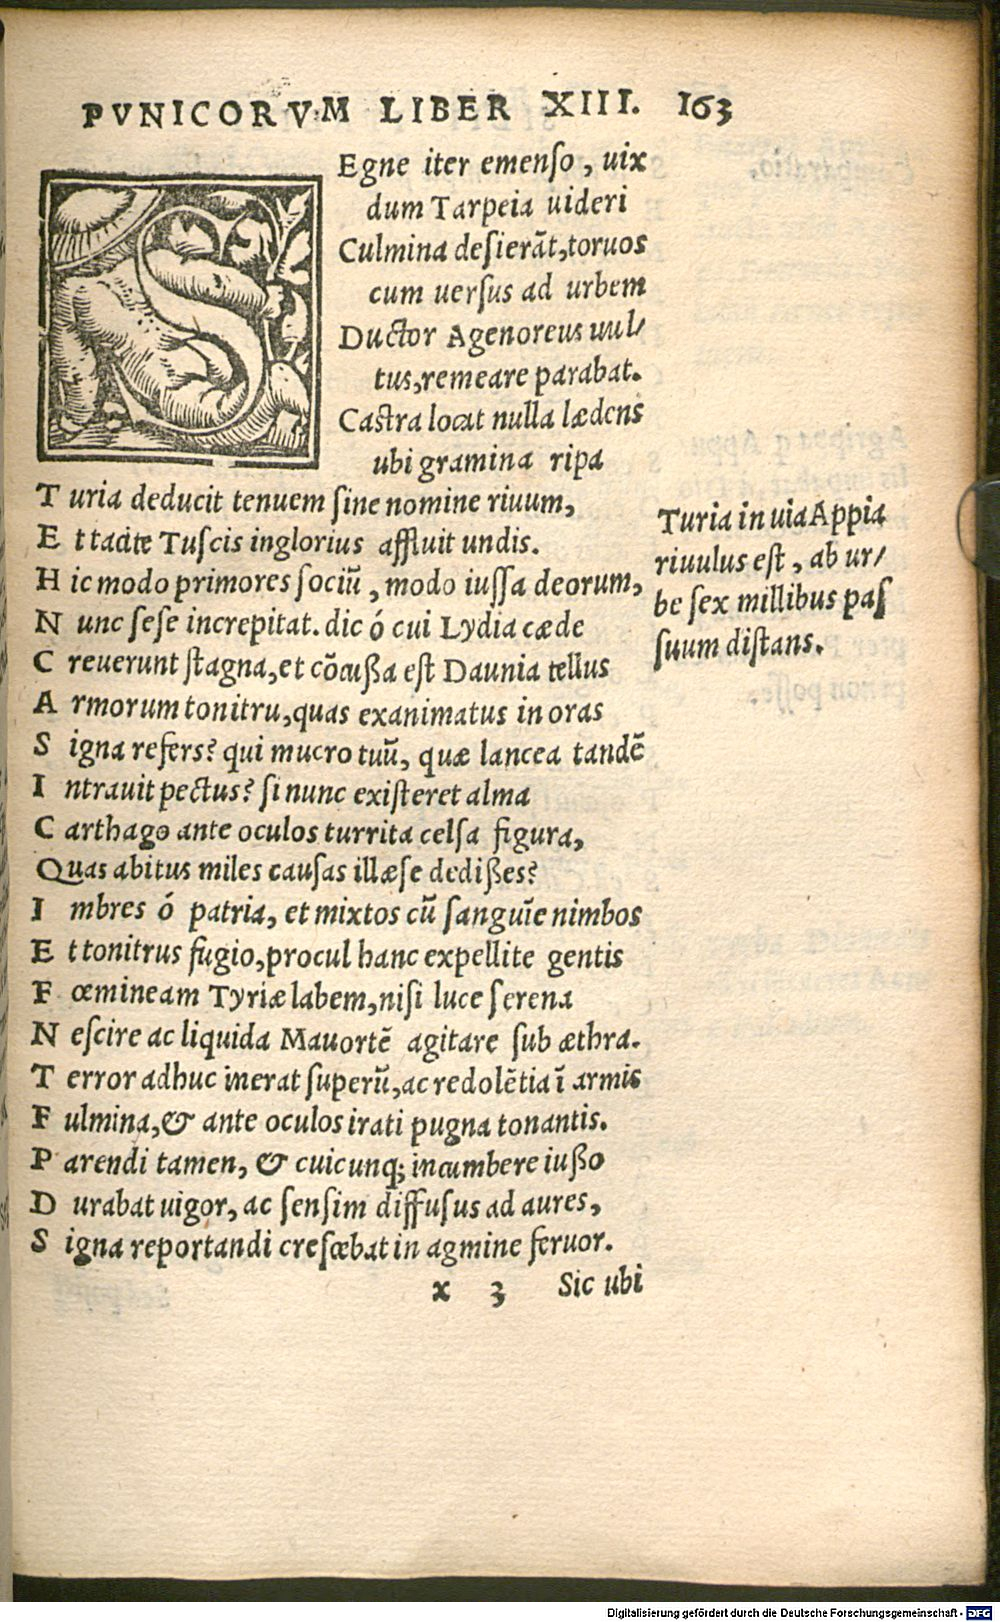 PVNICORVM LIBER XIII. 163
SEgne iter emenso, uix
dum Tarpeia uideri
Culmina desierãt, toruos
cum uersus ad urbem
Ductor Agenoreus uul/
tus, remeare parabat.
Castra locat nulla lædens
ubi gramina ripa
Turia deducit tenuem sine nomine riuum,
Et tacite Tuscis inglorius affluit undis.
Hic modo primores sociũ, modo iussa deorum,
Nunc sese increpitat. dic ó cui Lydia cæde
Creuerunt stagna, et cõcußa est Daunia tellus
Armorum tonitru, quas exanimatus in oras
Signa refers? qui mucro tuũ, quæ lancea tandẽ
Intrauit pectus? si nunc existeret alma
Carthago ante oculos turrita celsa figura,
Quas abitus miles causas illæse dedißes?
Imbres ó patria, et mixtos cũ sanguĩe nimbos
Et tonitrus fugio, procul hanc expellite gentis
Fœmineam Tyriæ labem, nisi luce serena
Nescire ac liquida Mauortẽ agitare sub æthra.
Terror adhuc inerat superũ, ac redolẽtia ĩ armis
Fulmina, & ante oculos irati pugna tonantis.
Parendi tamen, & cuicunq; incumbere iußo
Durabat uigor, ac sensim diffusus ad aures,
Signa reportandi crescebat in agmine feruor.
x 3 Sic ubi
Turia in uia Appia
riuulus est, ab ur/
be sex millibus pas
suum distans.
Digitalisierung gefördert durch die Deutsche Forschungsgemeinschaft - DFG